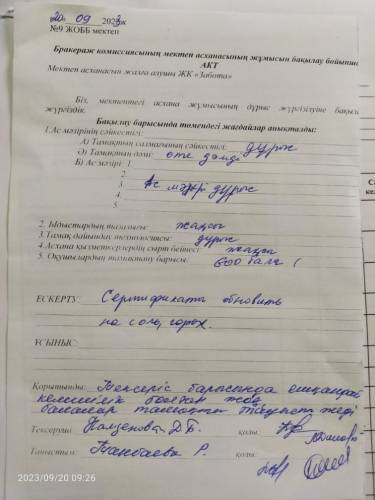 20. 09 2023ж
№9 ЖОББ мектеп
Бракераж комиссиясының мектеп асханасының жұмысын бақылау бойынша
АКТ
Мектеп асханасын жалға алушы ЖК «Забота»
Біз, мектептегі асхана жұмысының дұрыс жүргізілуіне бақылау
жүргіздік.
Бақылау барысында төмендегі жағдайлар анықталды:
1.Ас мәзірінің сәйкестігі:
А) Тамақтың салмағының сәйкестігі: дұрыс
Ә) Тамақтың дәмі: өте дәмді
Б) Ас мәзірі: 1.
2.
3. Ас мәзірі дұрыс
4
5.
2. Ыдыстардың тазалығы: жақсы
3.Тамақ дайындау технологиясы: дұрыс
4 Асхана қызметкерлердің сырт бейнесі жақсы
5. Оқушылардың тамақтану барысы: 600 бала
ЕСКЕРТУ: Сертификаты обновить
на соль, горох.
ҰСЫНЫС:
Қорытынды: Тексеріс барысында ешқандай
кемшілік болған жоқ
балалар тамақты тәуір жеді
Тексеруші: Д.Б. қолы:
Таныстым: Р. қолы:
2023/09/20 09:26